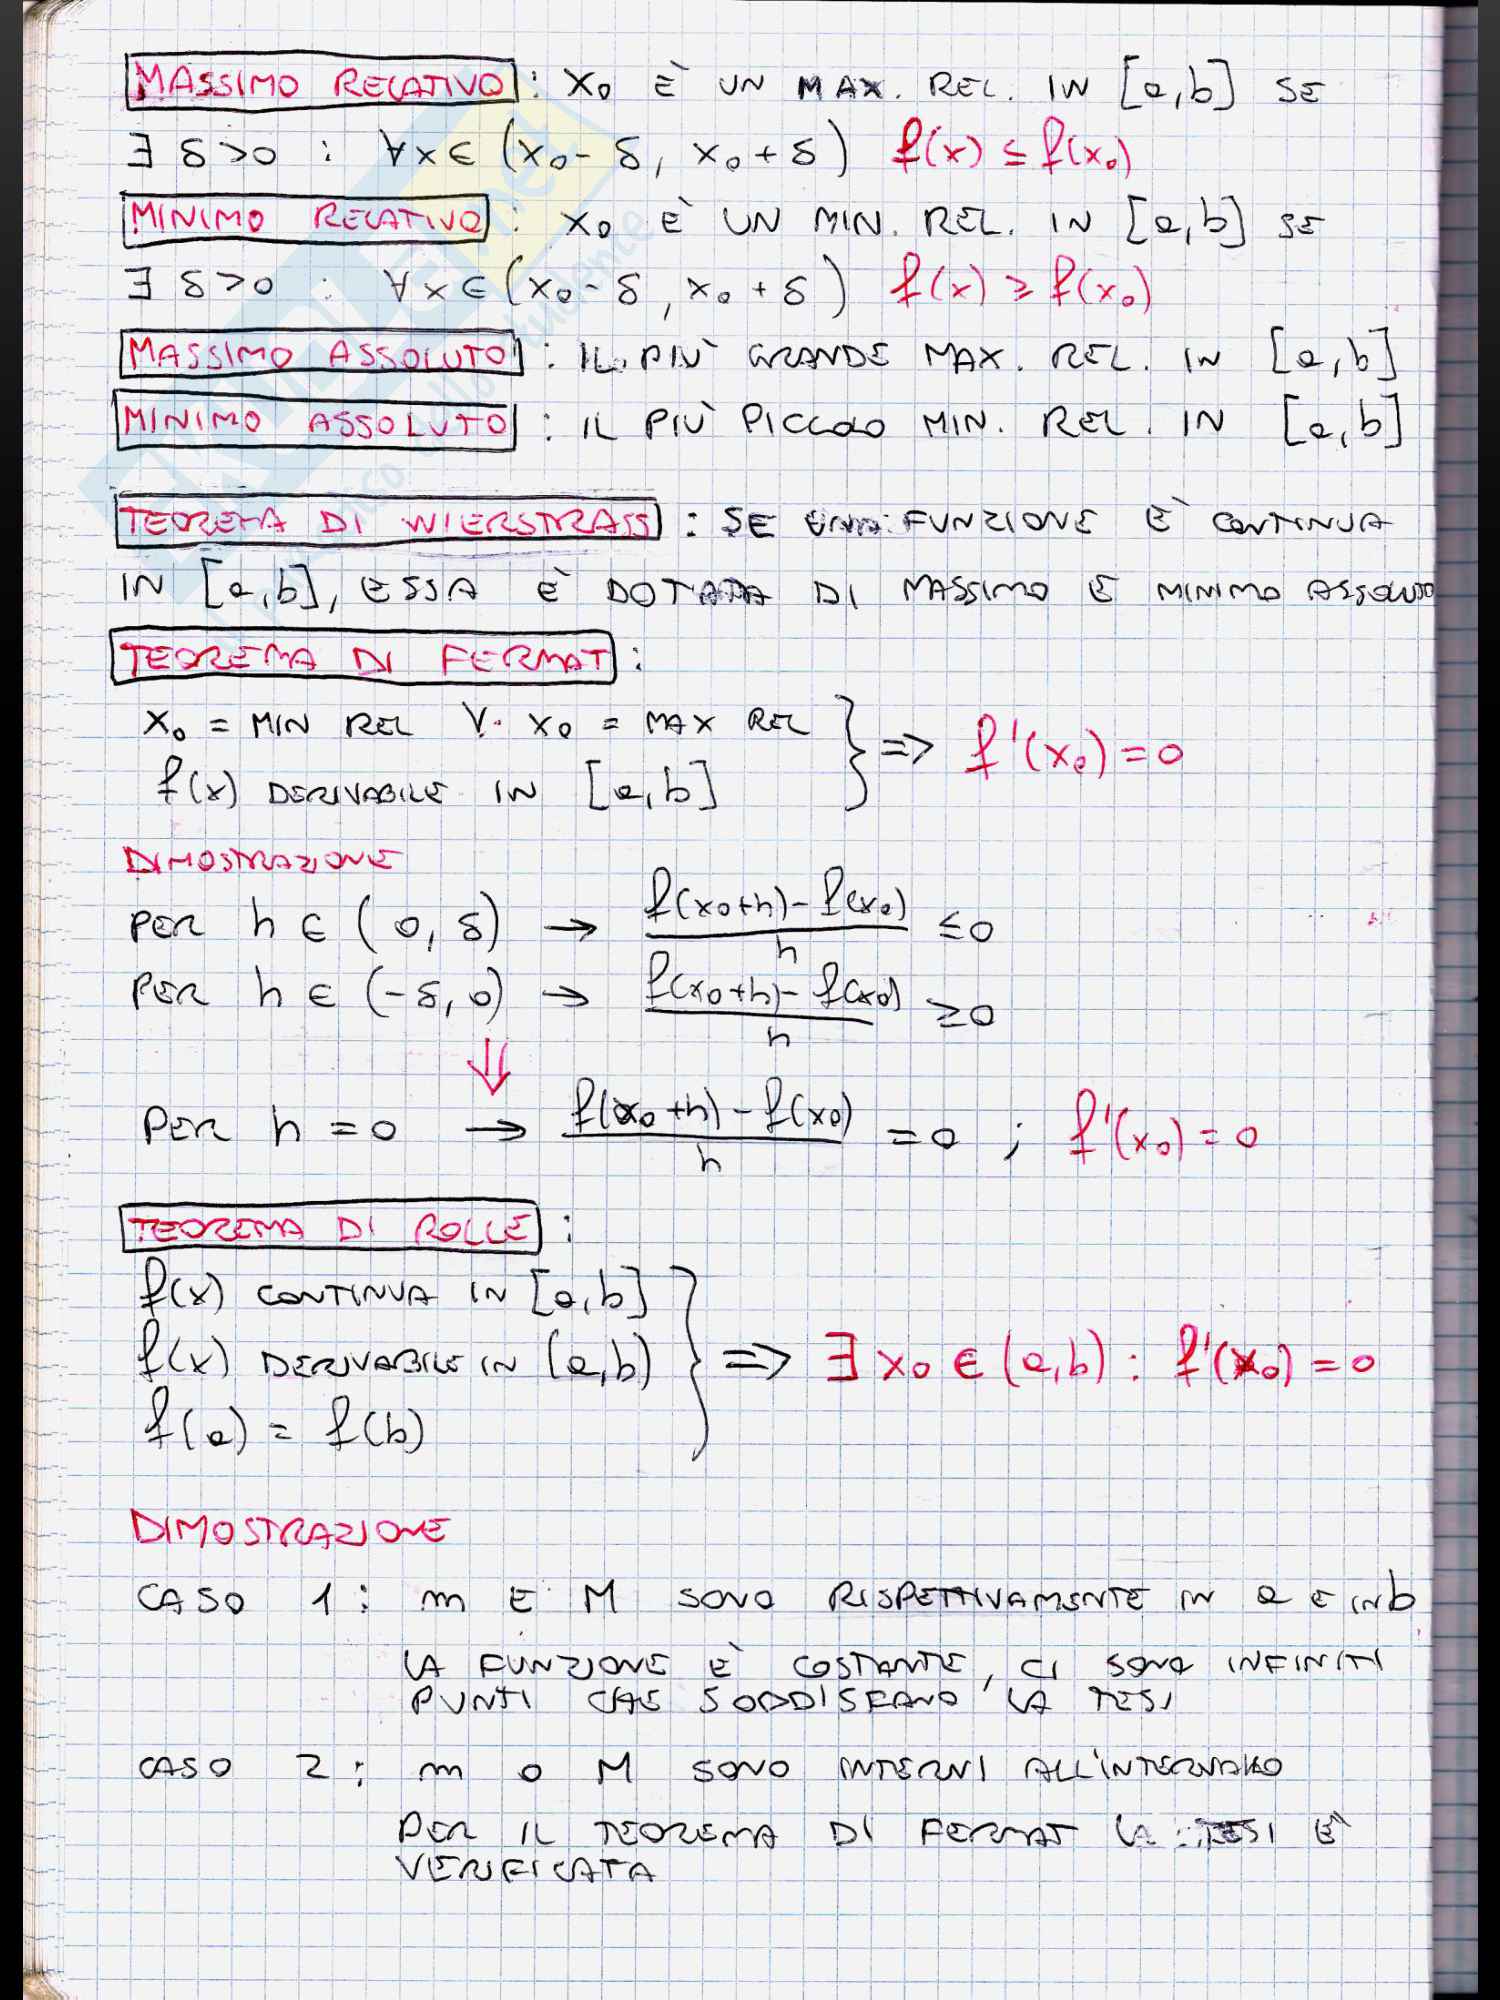 MASSIMO RELATIVO : x₀ È UN MAX. REL. IN [a,b] SE
∃ δ>0 : ∀x∈(x₀-δ, x₀+δ) f(x) ≤ f(x₀)
MINIMO RELATIVO : x₀ È UN MIN. REL. IN [a,b] SE
∃ δ>0 : ∀x∈(x₀-δ, x₀+δ) f(x) ≥ f(x₀)
MASSIMO ASSOLUTO : IL PIÙ GRANDE MAX. REL. IN [a,b]
MINIMO ASSOLUTO : IL PIÙ PICCOLO MIN. REL. IN [a,b]
TEOREMA DI WIERSTRASS : SE UNA FUNZIONE È CONTINUA
IN [a,b], ESSA È DOTATA DI MASSIMO E MINIMO ASSOLUTO
TEOREMA DI FERMAT :
x₀ = MIN REL ∨ x₀ = MAX REL
f(x) DERIVABILE IN [a,b] } => f'(x₀) = 0
DIMOSTRAZIONE
PER h ∈ (0, δ) → (f(x₀+h) - f(x₀))/h ≤ 0
PER h ∈ (-δ, 0) → (f(x₀+h) - f(x₀))/h ≥ 0
⇓
PER h = 0 → (f(x₀+h) - f(x₀))/h = 0 ; f'(x₀) = 0
TEOREMA DI ROLLE :
f(x) CONTINUA IN [a,b]
f(x) DERIVABILE IN (a,b) } => ∃ x₀ ∈ (a,b) : f'(x₀) = 0
f(a) = f(b)
DIMOSTRAZIONE
CASO 1 : m E M SONO RISPETTIVAMENTE IN a E IN b
LA FUNZIONE È COSTANTE, CI SONO INFINITI
PUNTI CHE SODDISFANO LA TESI
CASO 2 : m O M SONO INTERNI ALL'INTERVALLO
PER IL TEOREMA DI FERMAT LA TESI È
VERIFICATA